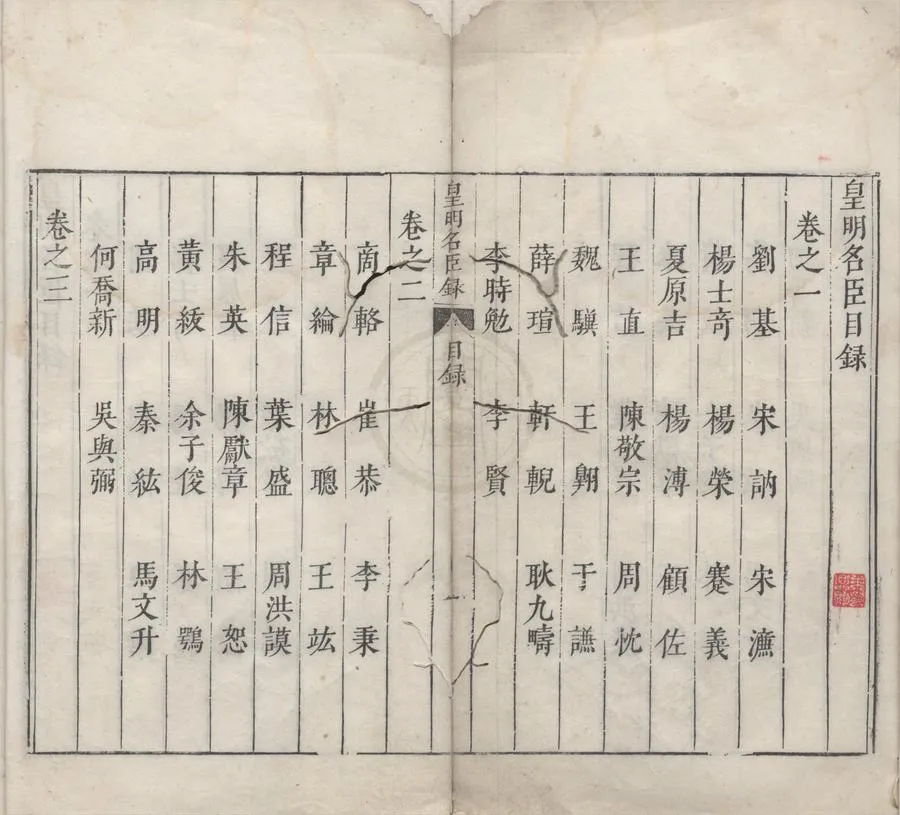 皇明名臣目録
卷之一
劉基 宋訥 宋濂
楊士竒 楊榮 蹇義
夏原吉 楊溥 顧佐
王直 陳敬宗 周忱
魏驥 王翺 于謙
薛瑄 軒輗 耿九疇
李時勉 李賢
皇明名臣録 目録 一
卷之二
商輅 崔恭 李秉
章綸 林聰 王竑
程信 葉盛 周洪謨
朱英 陳獻章 王恕
黄紱 余子俊 林鶚
高明 秦紘 馬文升
何喬新 吳與弼
卷之三